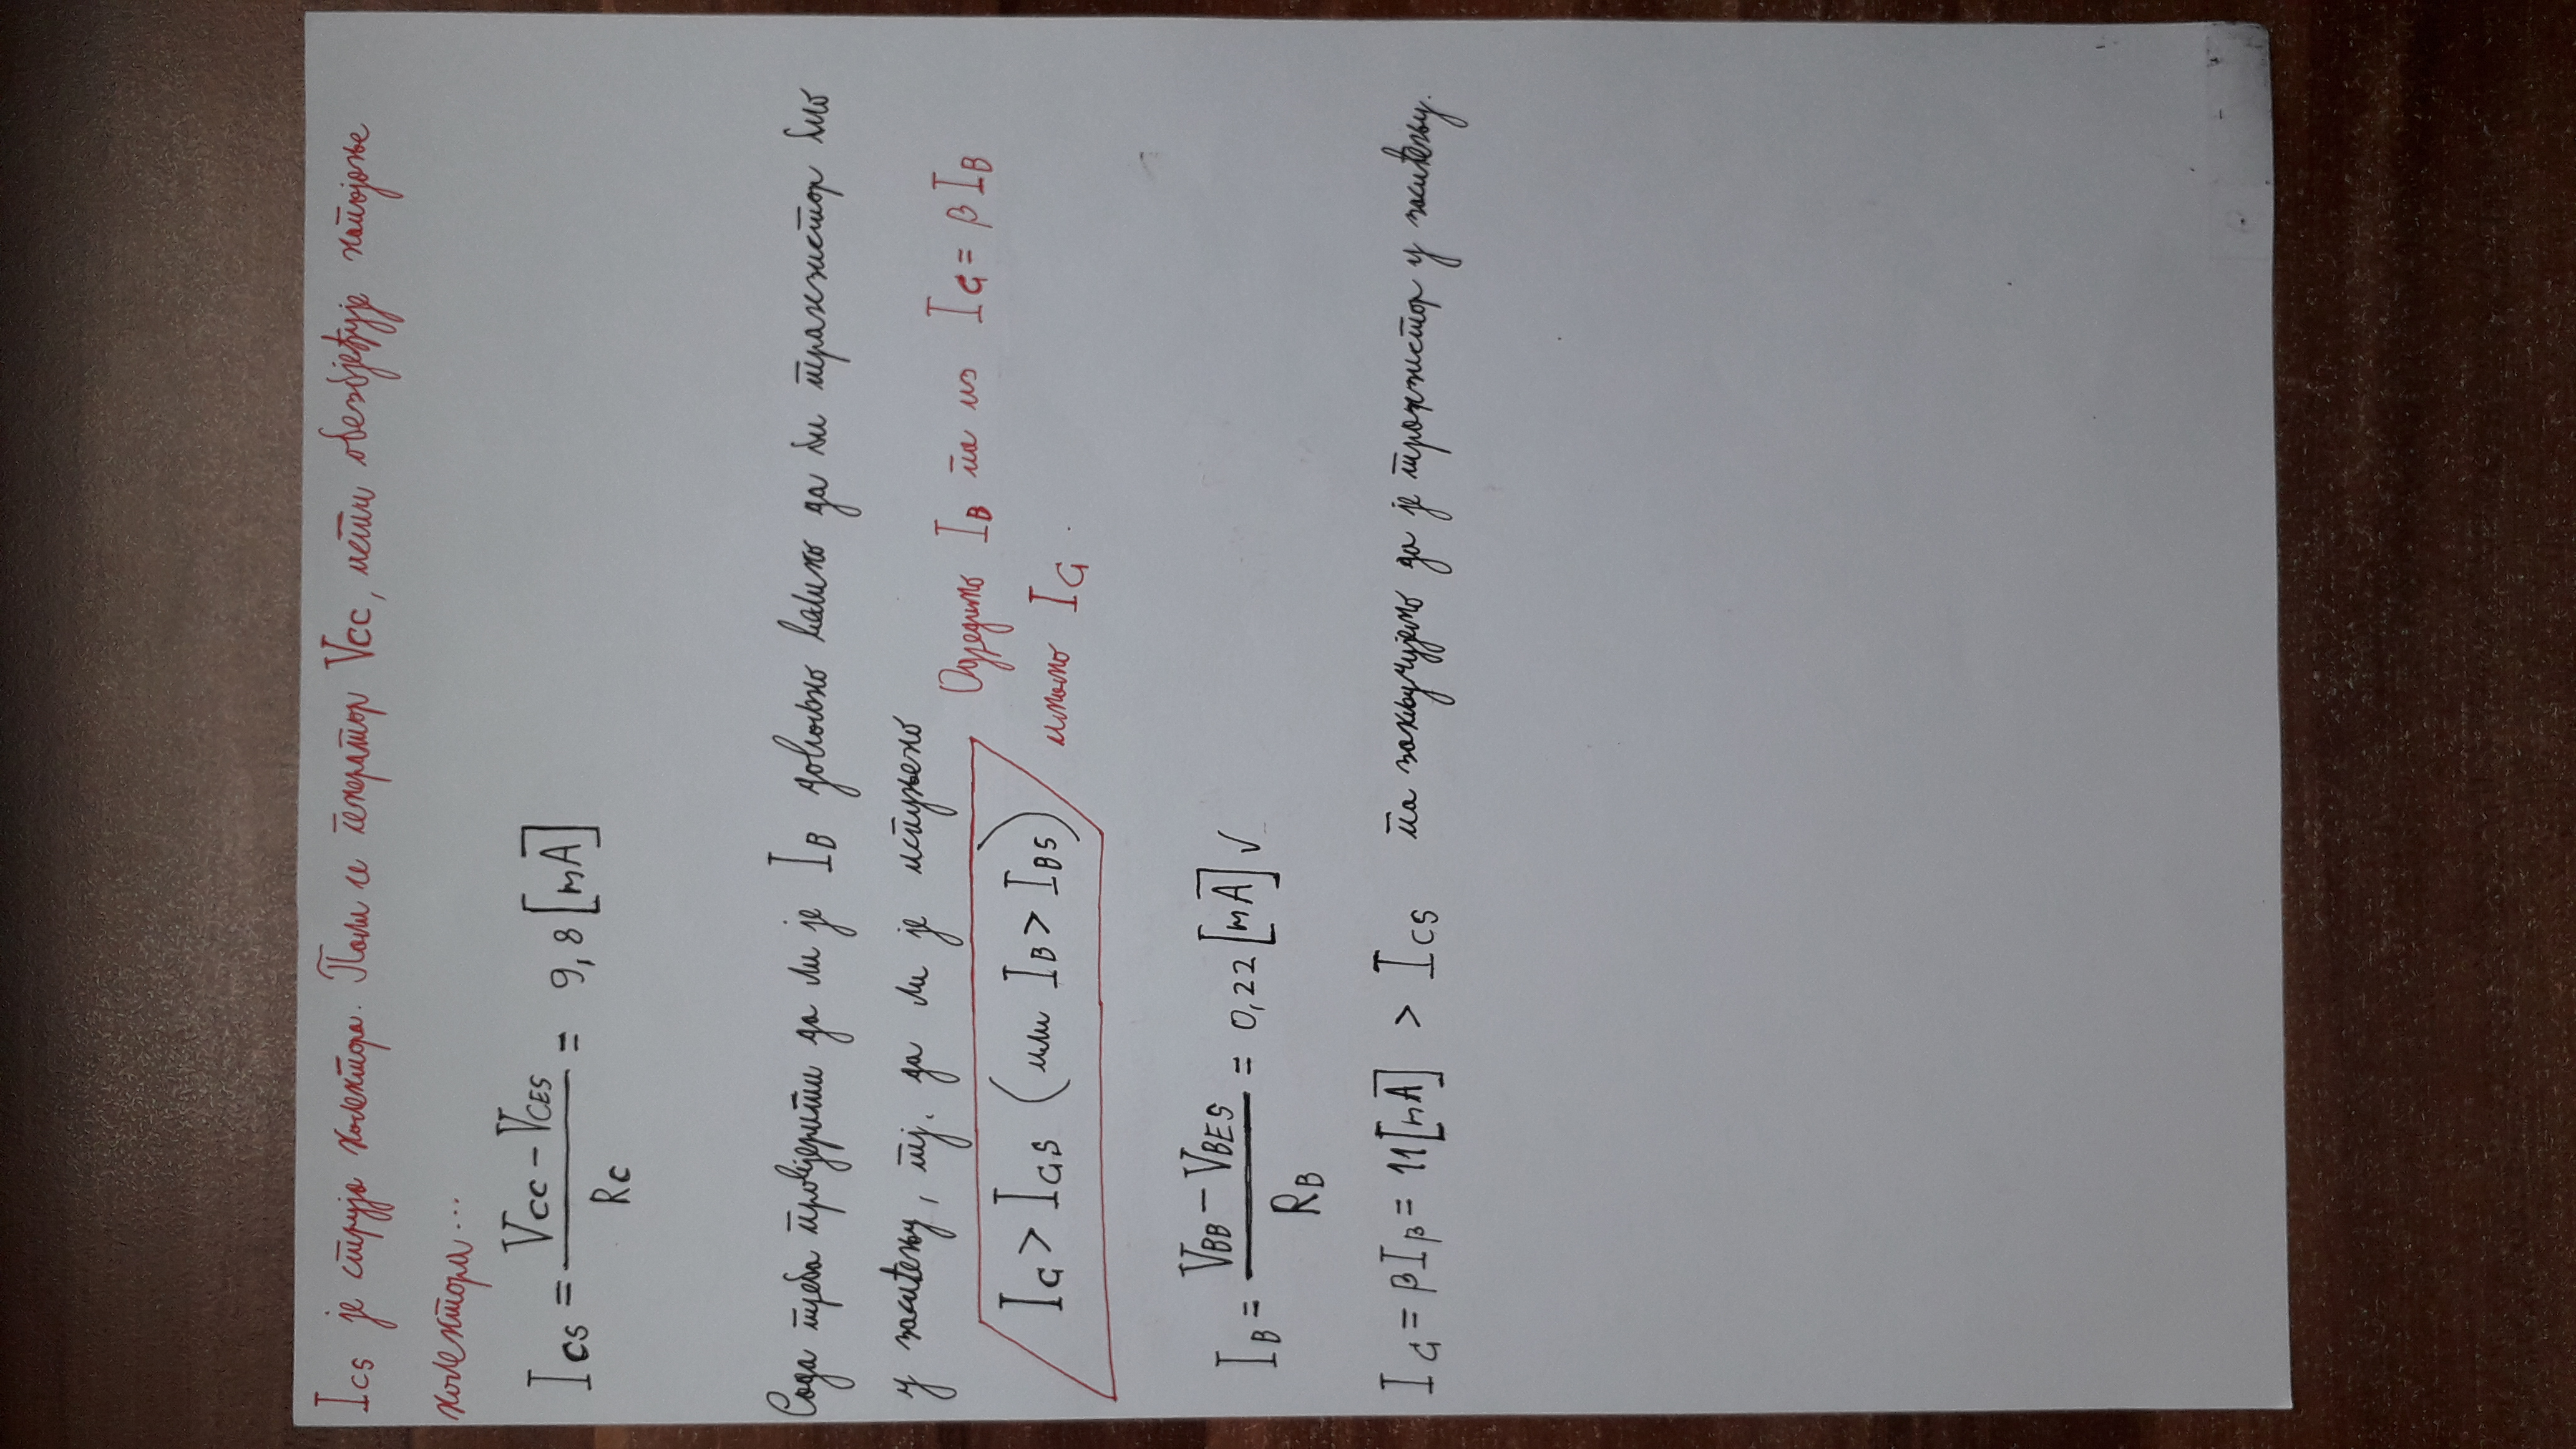 ICS је струја колектора. Пали се генератор VCC, исти обезбјеђује напајање
колектора...
ICS = (VCC - VCES) / RC = 9,8 [mA]
Сада треба провјерити да ли је IB довољно велико да би транзистор био
у засићењу, тј. да ли је испуњено
Одредимо IB па из IC = βIB
IC > ICS (или IB > IBS)
имамо IC.
IB = (VBB - VBES) / RB = 0,22 [mA] ✓
IC = βIB = 11 [mA] > ICS па закључујемо да је транзистор у засићењу.